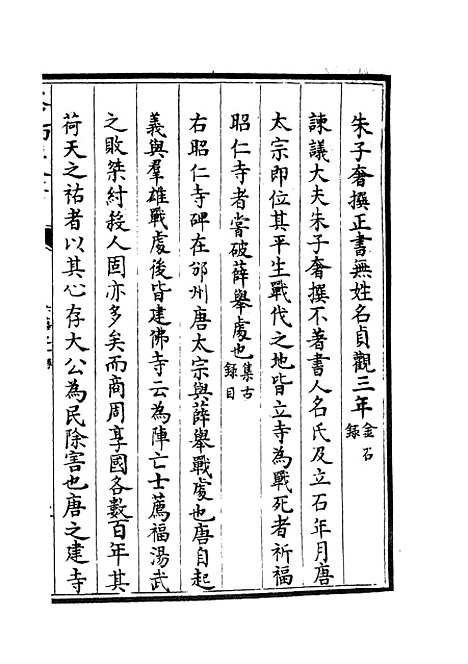 朱子奢撰正書無姓名貞觀三年金石錄
諫議大夫朱子奢撰不著書人名氏及立石年月唐
太宗即位其平生戰伐之地皆立寺為戰死者祈福
昭仁寺者嘗破薛舉處也集古錄目
右昭仁寺碑在邠州唐太宗與薛舉戰處也唐自起
義與羣雄戰處後皆建佛寺云為陣亡士薦福湯武
之敗桀紂殺人固亦多矣而商周享國各數百年其
荷天之祐者以其心存大公為民除害也唐之建寺